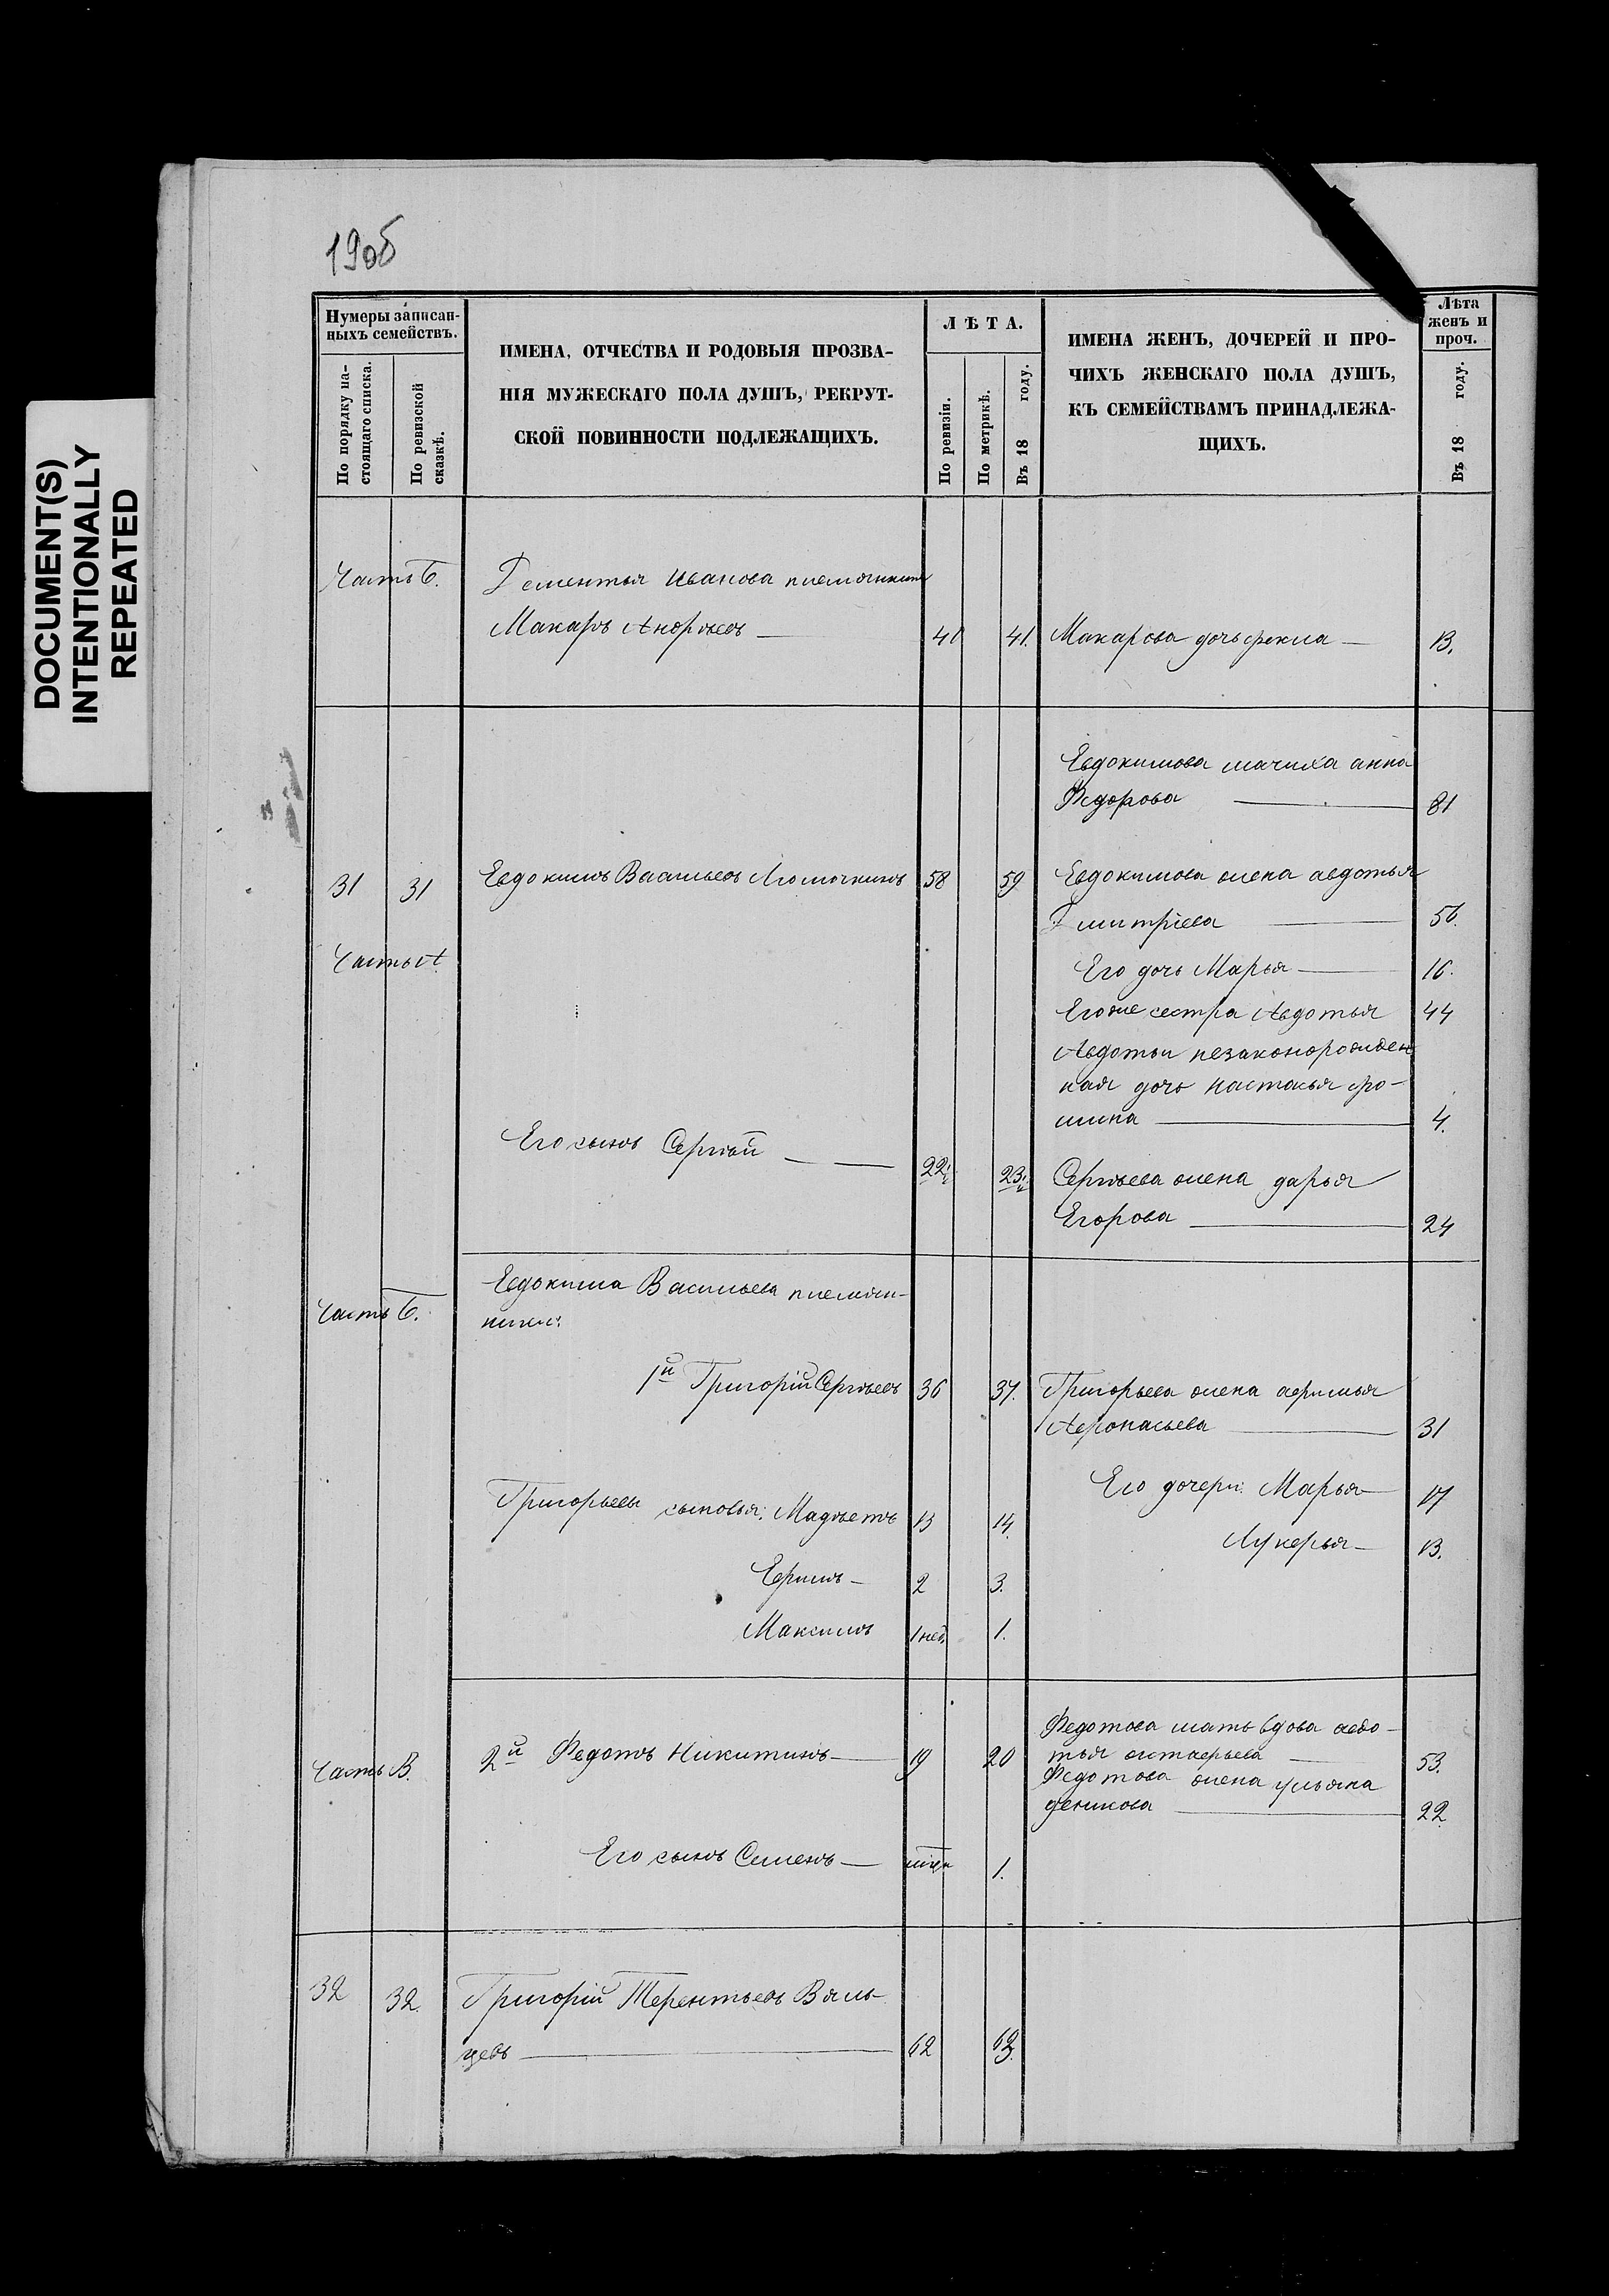 DOCUMENT(S)
INTENTIONALLY
REPEATED
190б
Нумеры записан-
ныхъ семействъ.
По порядку на-
стоящаго списка.
По ревизской
сказкѣ.
ИМЕНА, ОТЧЕСТВА И РОДОВЫЯ ПРОЗВА-
НІЯ МУЖЕСКАГО ПОЛА ДУШЪ, РЕКРУТ-
СКОЙ ПОВИННОСТИ ПОДЛЕЖАЩИХЪ.
ЛѢТА.
По ревизіи.
По метрикѣ.
Въ 18 году.
ИМЕНА ЖЕНЪ, ДОЧЕРЕЙ И ПРО-
ЧИХЪ ЖЕНСКАГО ПОЛА ДУШЪ,
КЪ СЕМЕЙСТВАМЪ ПРИНАДЛЕЖА-
ЩИХЪ.
Лѣта
женъ и
проч.
Въ 18 году.
Часть Б. Дементья Иванова племянникъ
Макаръ Андрѣевъ — 41 41. Макарова дочь фекла — 13.
Евдокимова мачиха анна
Федорова — 81
31 31 Евдокимъ Васильевъ 58 59 Евдокимова жена авдотья
Дмитріева — 56.
Часть А
Его дочь Марья — 16.
Его же сестра Авдотья 44
Авдотьи незаконорожден
ная дочь настасья фо-
мина — 4.
Его сынъ Сергѣй — 22 23. Сергѣева жена дарья
Егорова — 24
Часть Б. Евдокима Васильева племян-
ники:
1й Григорій Сергѣевъ 36 37. Григорьева жена афимья
Афонасьева — 31
Его дочери: Марья — 17
Григорьевы сыновья: Мадѣетъ 13 14.
Лукерья — 13.
Ефимъ — 2 3.
Максимъ 1 нед. 1.
Федотова мать вдова авдо-
Часть В. 2й Федотъ Никитинъ — 19 20 тья астафьева — 53.
Федотова жена ульяна
денисова — 22
Его сынъ Семенъ — 1.
32 32. Григорій Терентьевъ Вяль-
цевъ — 62 63.